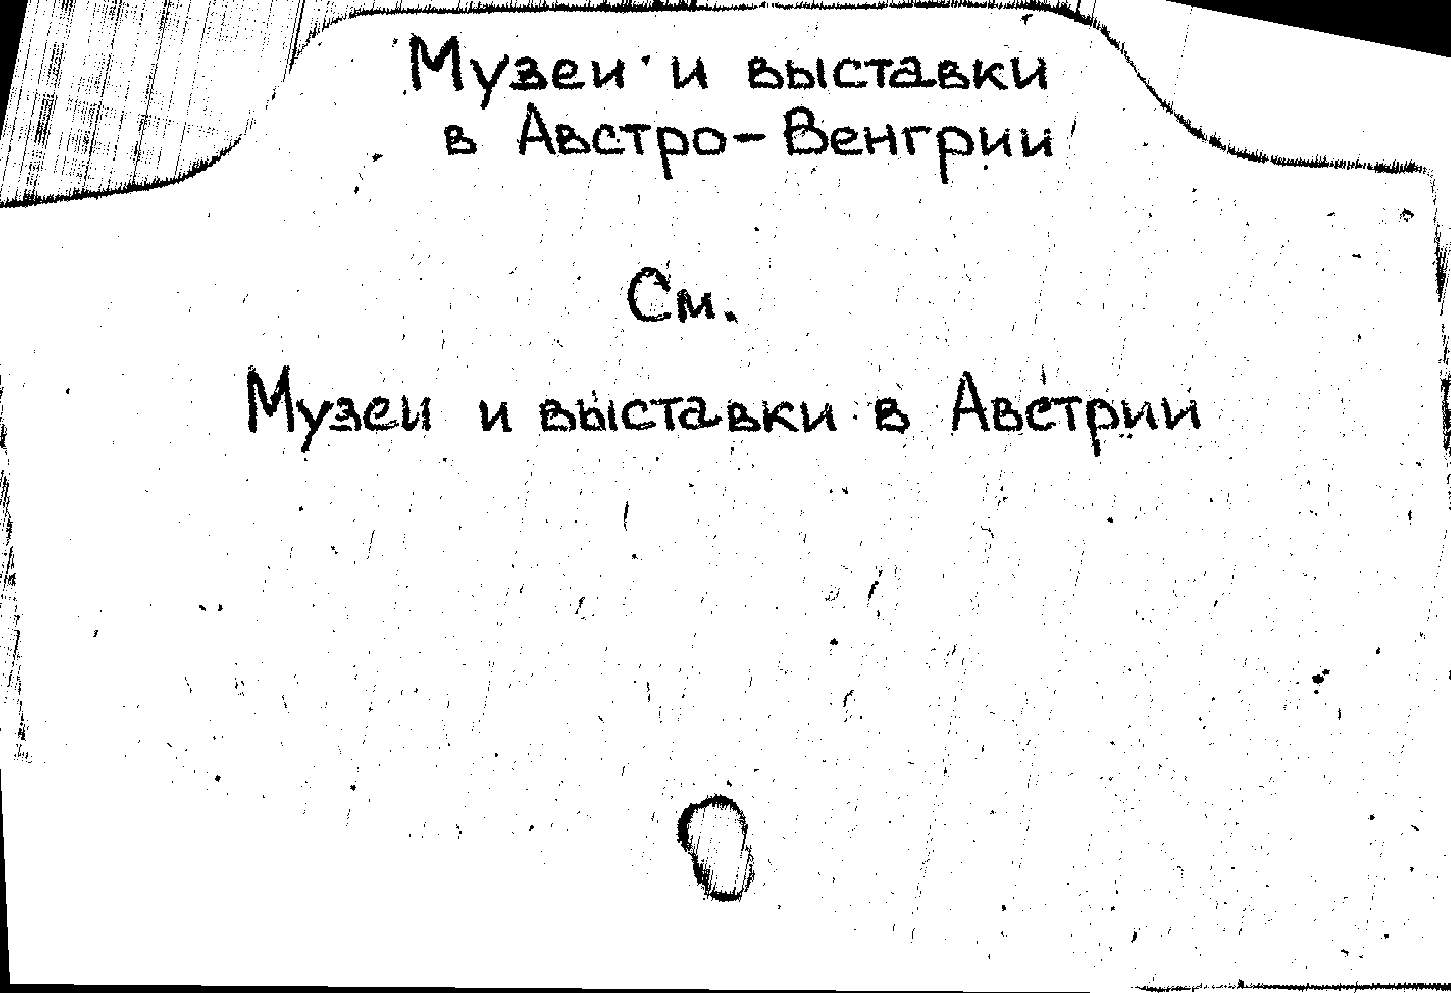 Музеи и выставки
в Австро-Венгрии
См.
Музеи и выставки в Австрии